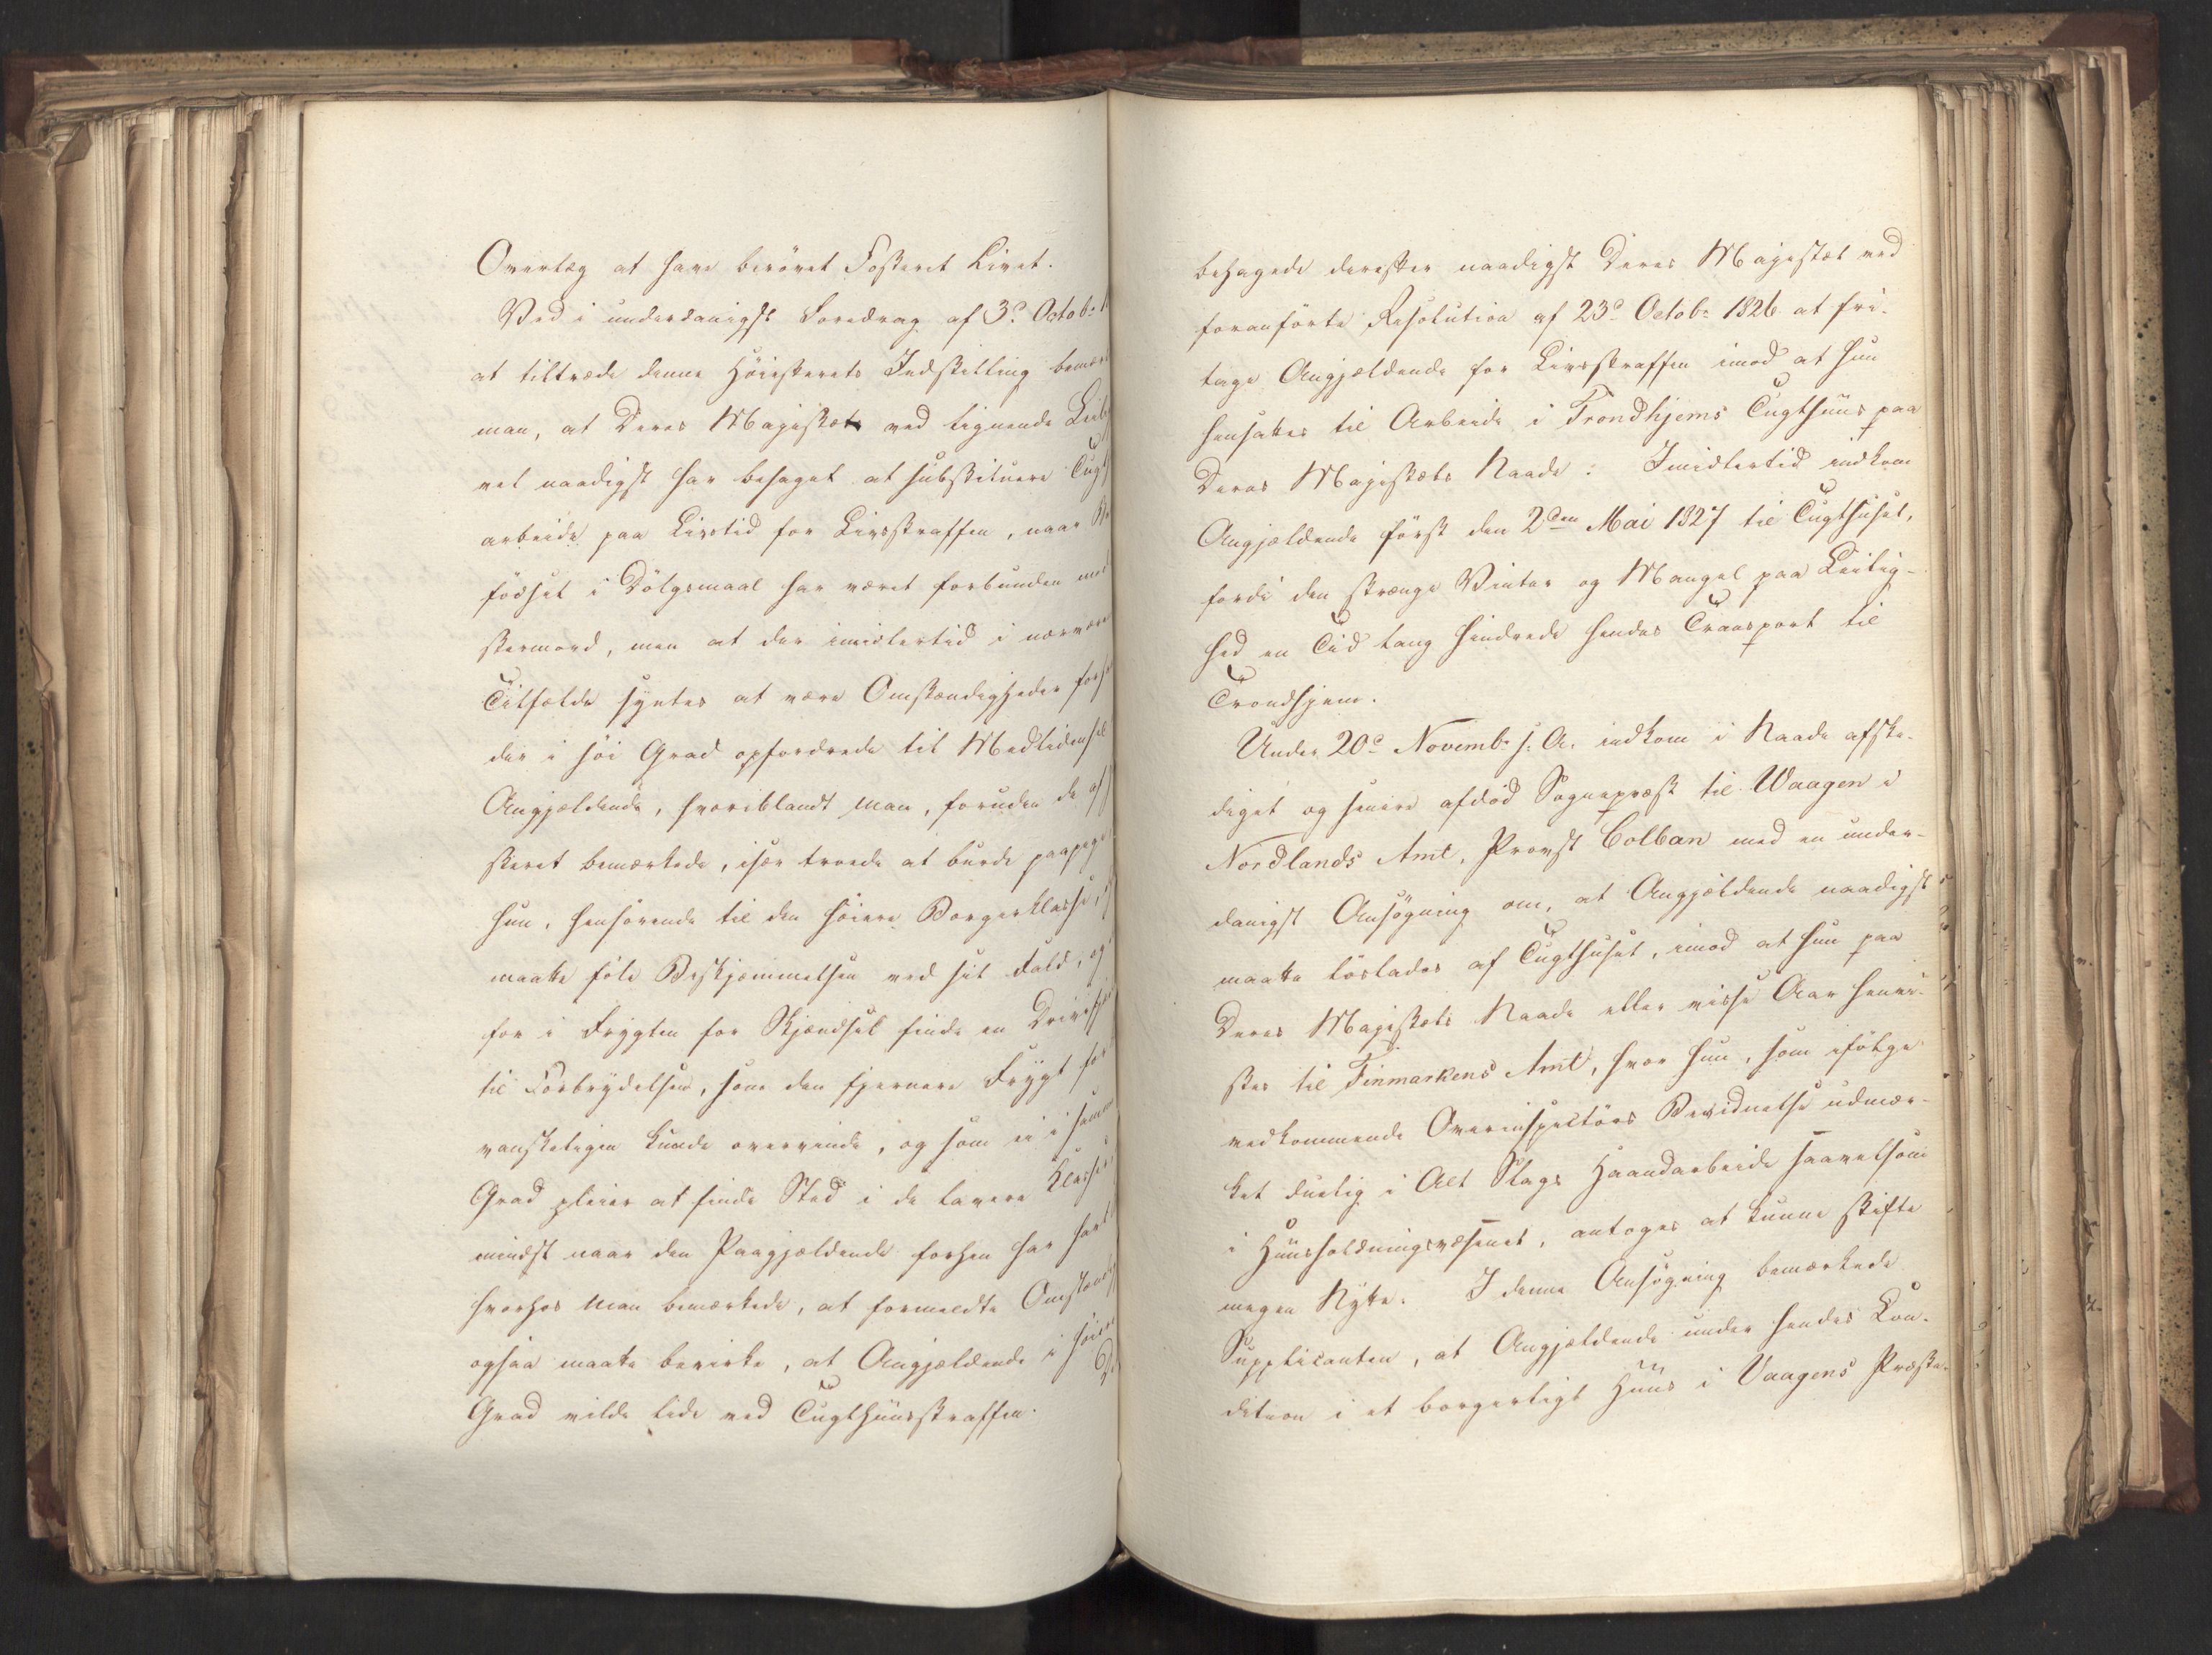 Overlæg at have berövet Fosteret Livet.
Ved i underdanigst Foredrag af 3d Octobr
at tiltræde denne Höiesterets Indstilling bemær
man, at Deres Majestæt ved lignende Leili
vel naadigst har behaget at substituere Tugt
arbeide paa Livstid for Livsstraffen, naar
födsel i Dölgsmaal har været forbunden med
stermord, men at der imidlertid i nærvær
Tilfælde syntes at være Omstændigheder forh
der i höi Grad opfordrede til Medlidenhed
Angjældende, hvoriblandt man, foruden de af H
steret bemærkede, især troede at burde paapege
hun, henhörende til den höiere Borgerklasse,
maatte föle Beskjæmmelsen ved sit Fald, og
for i Frygten for Skjændsel finde en Drivefj
til Forbrydelsen, som den fjernere Frygt for
vanskeligen kunde overvinde, og som ei i samme
Grad pleier at finde Sted i de lavere Klasser
mindst naar den Paagjældende forhen har havt
hvorhos man bemærkede, at formeldte Omstænd
ogsaa maatte bevirke, at Angjældende i höiere
Grad vilde lide ved Tugthuusstraffen.
De
behagede derefter naadigst Deres Majestæt ved
foranförte Resolution af 23d Octobr 1826 at fri-
tage Angjældende for Livsstraffen imod at hun
hensattes til Arbeide i Trondhjems Tugthuus paa
Deres Majestæts Naade. Imidlertid indkom
Angjældende först den 2den Mai 1827 til Tugthuset,
fordi den strænge Vinter og Mangel paa Leilig-
hed en Tid lang hindrede hendes Transport til
Trondhjem.
Under 20d Novembr s. A. indkom i Naade afske-
diget og senere afdöd Sognepræst til Waagen i
Nordlands Amt, Provst Colban med en under-
danigst Ansögning om, at Angjældende naadigst
maatte löslades af Tugthuset, imod at hun paa
Deres Majestæts Naade eller visse Aar henvi-
stes til Finmarkens Amt, hvor hun, som ifölge
vedkommende Overinspectörs Bevidnelse udmær-
ket duelig i Alt Slags Haandarbeide saavelsom
i Huusholdningsvæsenet, antoges at kunne stifte
megen Nytte. I denne Ansögning bemærkede
Supplicanten, at Angjældende under hendes Con-
dition i et borgerligt Huus i Vaagens Præste-